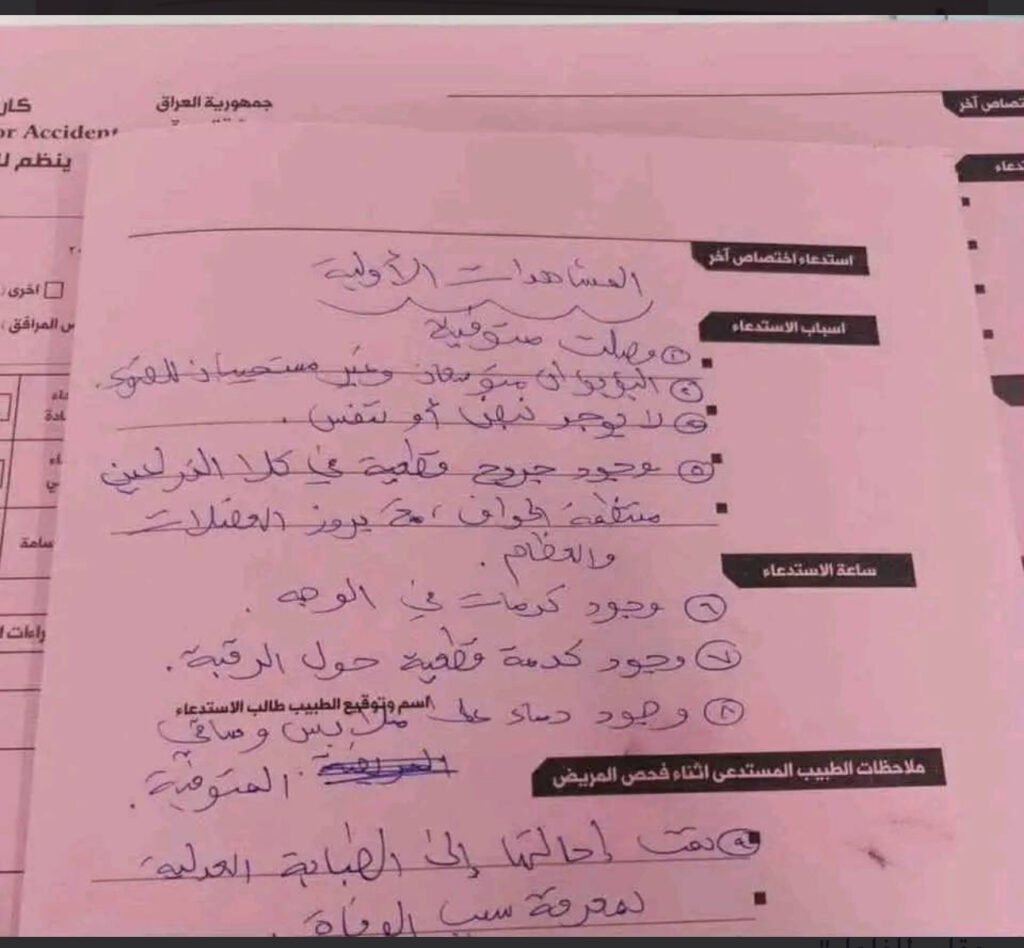 جمهورية العراق
or Accident
ينظم
اخرى
المرافق
استدعاء اختصاص آخر
المشاهدات الأولية
اسباب الاستدعاء
وصلت متوفية
البؤبؤان متوسعان وغير مستجيبان للضوء.
لا يوجد نبض أو تنفس.
٥ وجود جروح قطعية في كلا الذراعين
منتظمة الحواف، مع بروز العضلات
والعظام.
ساعة الاستدعاء
٦ وجود كدمات في الوجه.
٧ وجود كدمة قطعية حول الرقبة.
٨ وجود دماء على ملابس وساقي
اسم وتوقيع الطبيب طالب الاستدعاء
المتوفية.
ملاحظات الطبيب المستدعى اثناء فحص المريض
٩ تمت إحالتها إلى الطبابة العدلية
لمعرفة سبب الوفاة